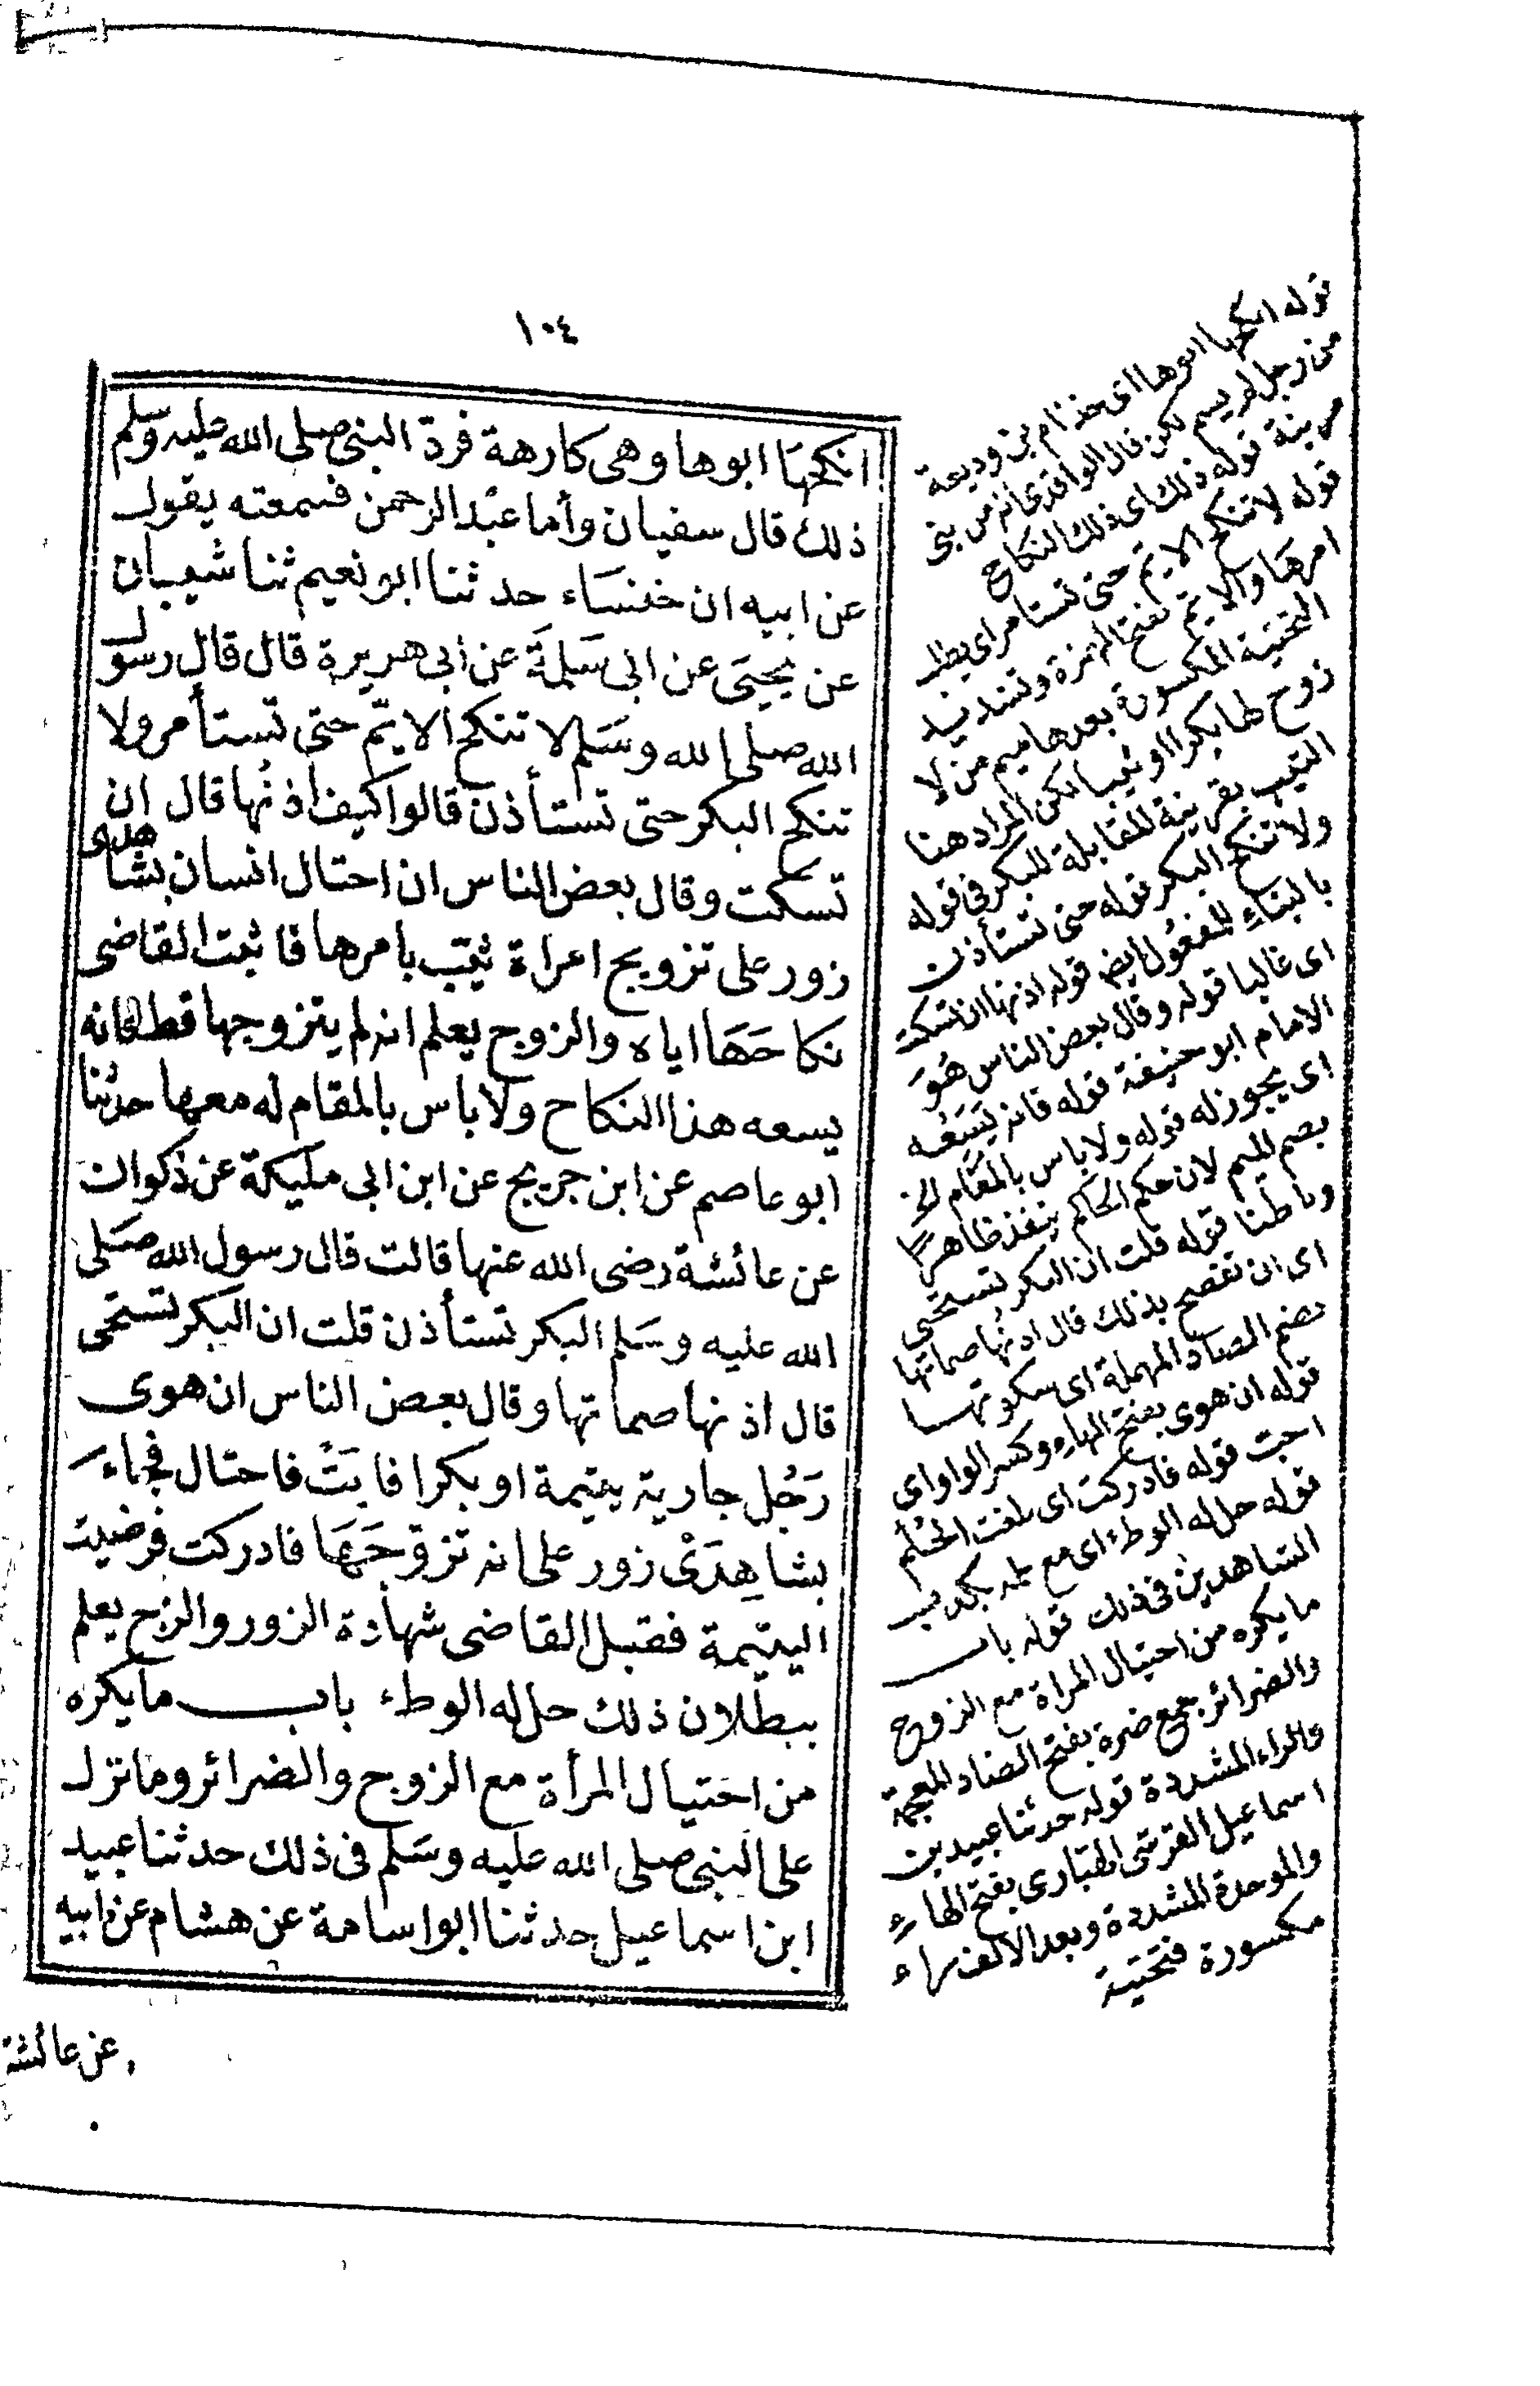 ١٠٤
انكحها ابوها وهى كارهة فرد النبى صلى الله عليه وسلم
ذلك قال سفيان وأما عبد الرحمن فسمعته يقول
عن ابيه ان خنساء حدثنا ابو نعيم ثنا شيبان
عن يحيى عن ابى سلمة عن ابى هريرة قال قال رسول
الله صلى الله وسلم لا تنكح الايم حتى تستأمر ولا
تنكح البكر حتى تستأذن قالوا كيف اذنها قال ان
تسكت وقال بعض الناس ان احتال انسان بشاهدى
زور على تزويج امراة ثيب بامرها فاثبت القاضى
نكاحها اياه والزوج يعلم انه لم يتزوجها قط فانه
يسعه هذا النكاح ولا باس بالمقام له معها حدثنا
ابو عاصم عن ابن جريج عن ابن ابى مليكة عن ذكوان
عن عائشة رضى الله عنها قالت قال رسول الله صلى
الله عليه وسلم البكر تستأذن قلت ان البكر تستحى
قال اذنها صماتها وقال بعض الناس ان هوى
رجل جارية يتيمة او بكرا فابت فاحتال فجاء
بشاهدى زور على انه تزوجها فادركت فرضيت
اليتيمة فقبل القاضى شهادة الزور والزوج يعلم
ببطلان ذلك حل له الوطء باب ما يكره
من احتيال المرأة مع الزوج والضرائر وما نزل
على النبى صلى الله عليه وسلم فى ذلك حدثنا عبيد
ابن اسماعيل حدثنا ابو اسامة عن هشام عن ابيه
عن عائشة
قوله انكحها ابوها اى خذام بن وديعة
من رجل لم يسم لكن قال الواقدى انه من بنى
مزينة قوله ذلك اى ذلك النكاح
قوله لا تنكح الايم حتى تستامر اى يطلب
امرها والايم بفتح الهمزة وتشديد
التحتية المكسورة بعدها ميم من لا
زوج لها بكرا او ثيبا لكن المراد هنا
الثيب بقرينة المقابلة للبكر فى قوله
ولا تنكح البكر قوله حتى تستأذن
بالبناء للمفعول ايضا قوله اذنها ان تسكت
اى غالبا قوله وقال بعض الناس هو
الامام ابو حنيفة قوله فانه يسعه
اى يجوز له قوله ولا باس بالمقام الخ
بضم الميم لان حكم الحاكم ينفذ ظاهرا
وباطنا قوله قلت ان البكر تستحى
اى ان تفصح بذلك قال اذنها صماتها
بضم الصاد المهملة اى سكوتها
قوله ان هوى بفتح الهاء وكسر الواو اى
احب قوله فادركت اى بلغت الحلم
قوله حل له الوطء اى مع علمه بكذب
الشاهدين فى ذلك قوله باب
ما يكره من احتيال المراة مع الزوج
والضرائر جمع ضرة بفتح الضاد المعجمة
والراء المشددة قوله حدثنا عبيد بن
اسماعيل القرشى الهبارى بفتح الهاء
والموحدة المشددة وبعد الالف راء
مكسورة فتحتية